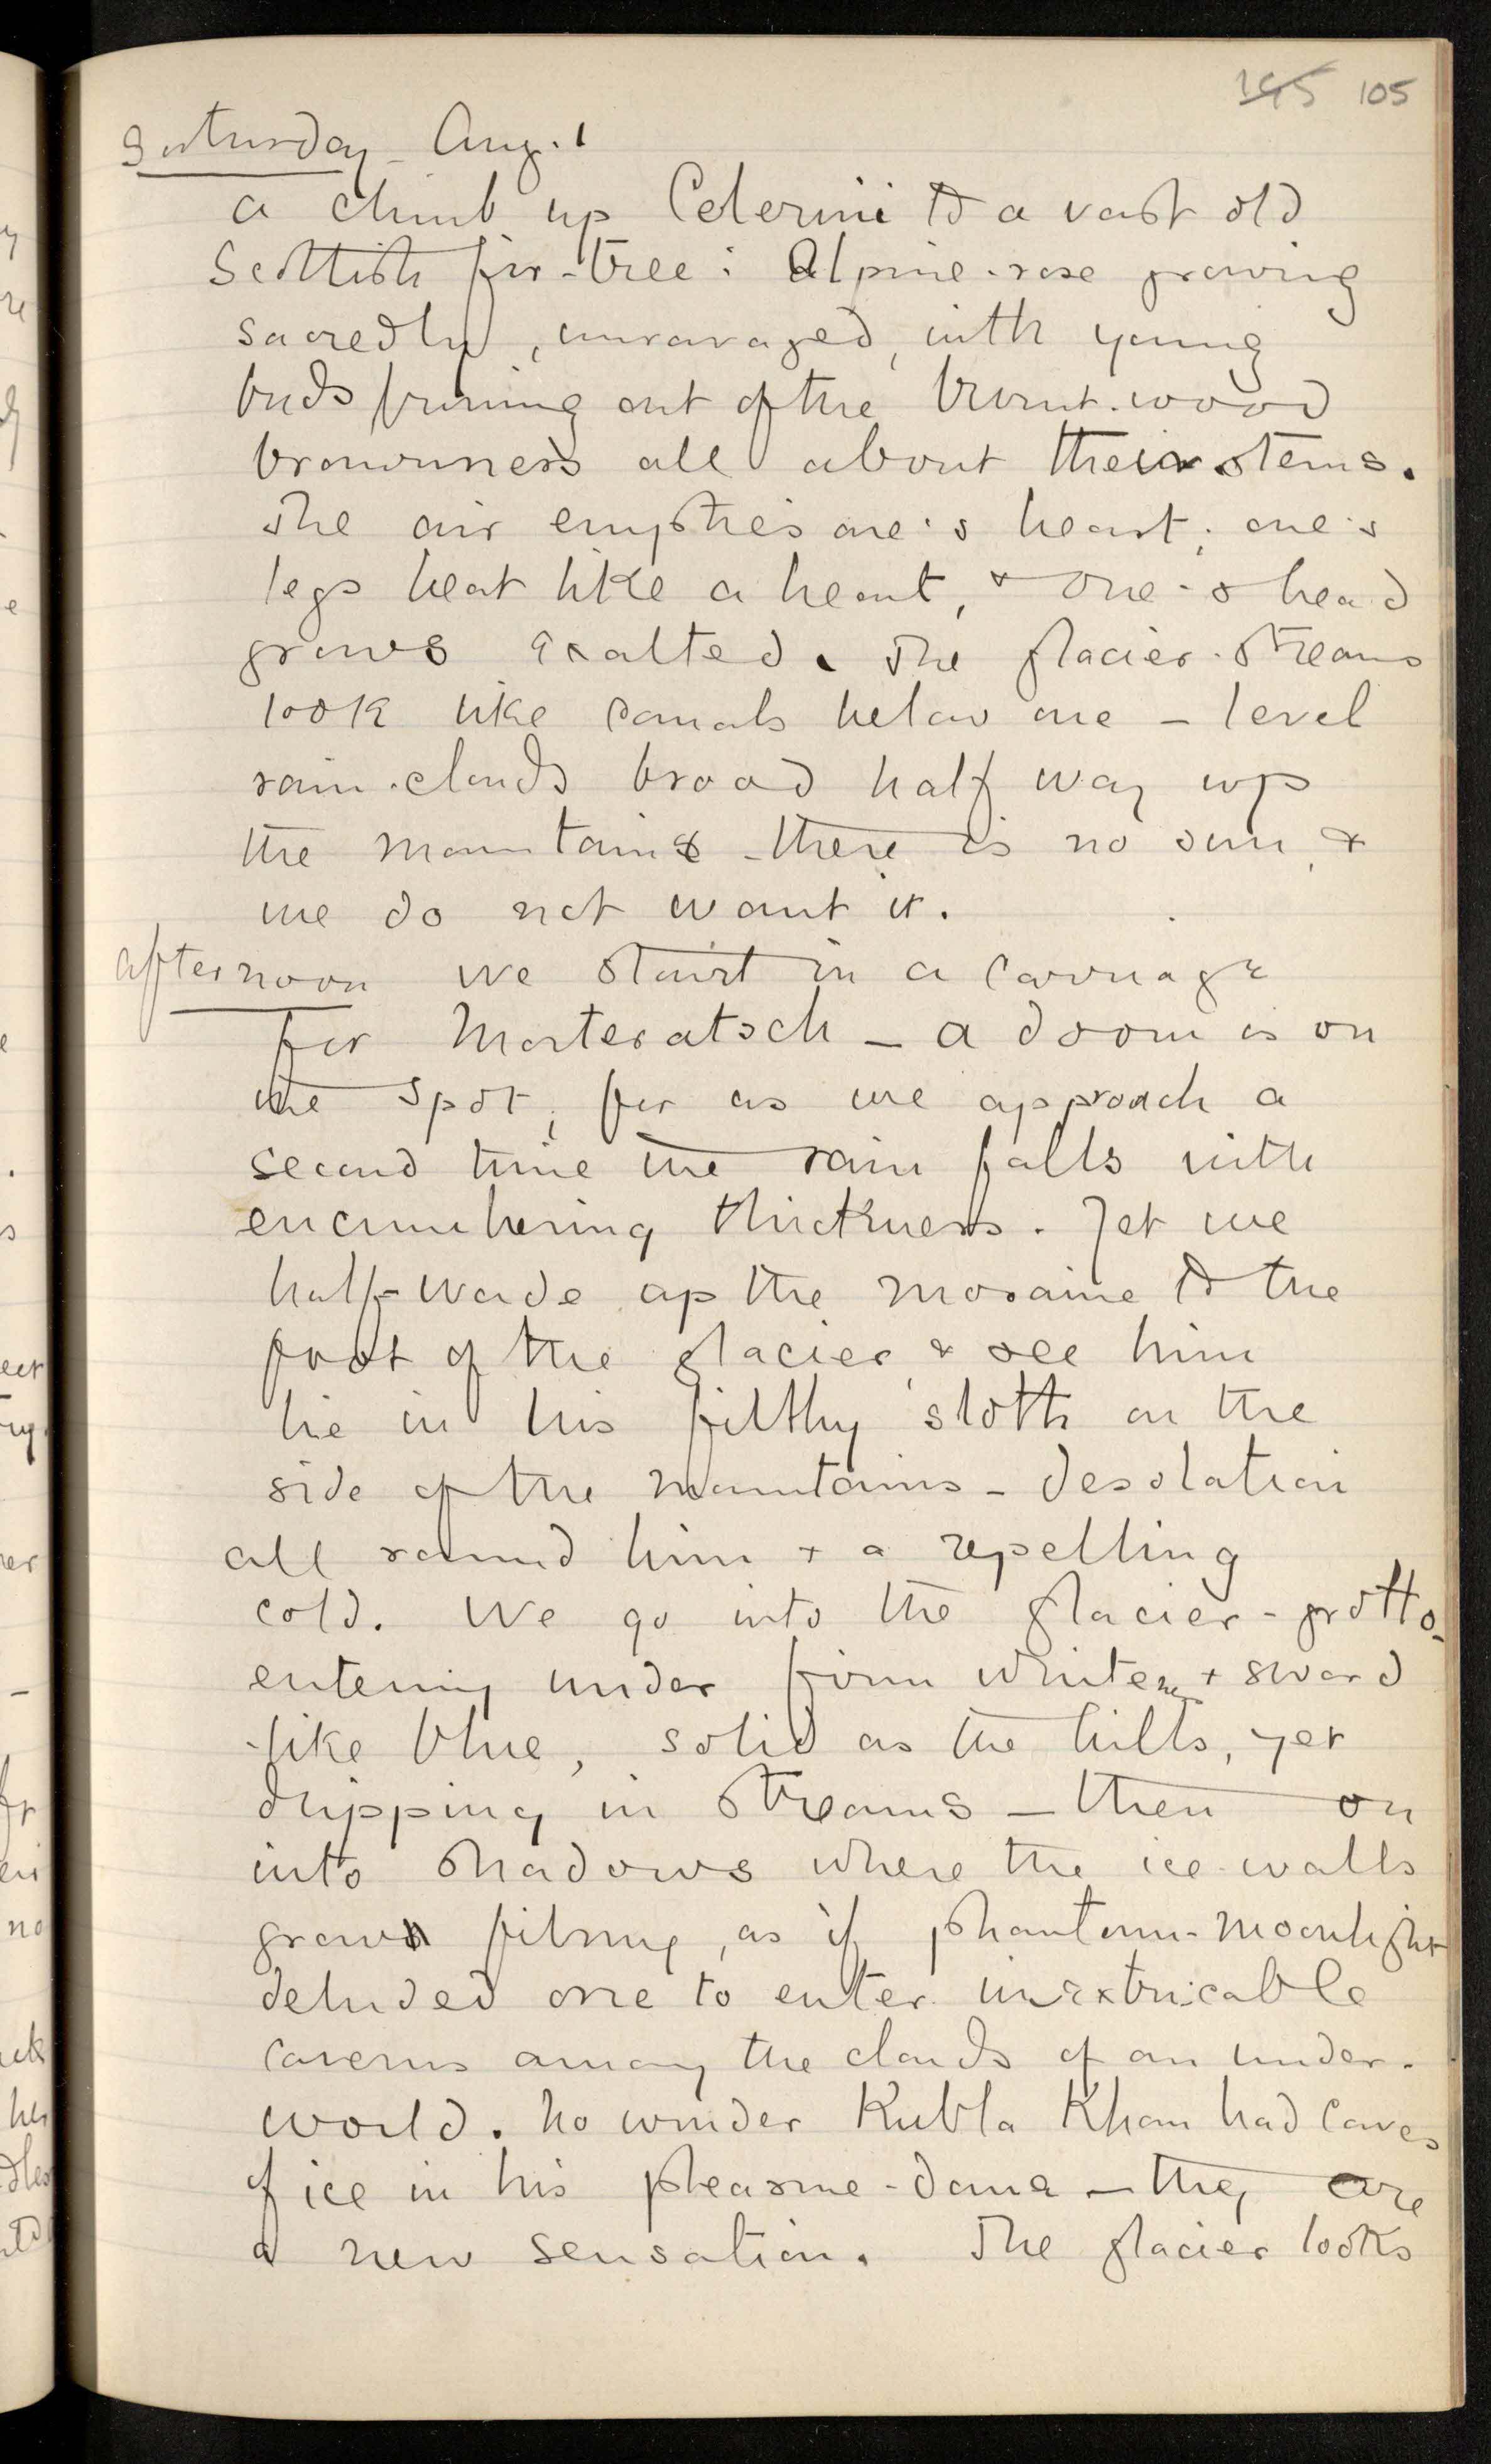 145 105
Saturday - Aug. 1
a climb up Celerini to a vast old
Scottish fir-tree: Alpine-rose growing
sacredly, unravaged, with young
buds firing out of the burnt-wood
brownness all about their stems.
The air empties one's heart; one's
legs beat like a heart, & one's head
grows exalted. The glacier-streams
look like canals below one – level
rain-clouds brood half way up
the mountains – there is no sun, &
we do not want it.
Afternoon we start in a carriage
for Morteratsch – a doom is on
the spot, for as we approach a
second time the rain falls with
encumbering thickness. Yet we
half-wade up the moraine to the
foot of the glacier, & see him
lie in his filthy sloth on the
side of the mountains – desolation
all round him & a repelling
cold. We go into the glacier-grotto
entering under firm whiteness & sword
-like blue, solid as the hills, yet
dripping in streams – then on
into shadows where the ice-walls
grow filmy, as if phantom-moonlight
deluded one to enter inextricable
caverns among the clouds of an under-
world. No wonder Kubla Khan had caves
of ice in his pleasure-dome – they are
a new sensation. The glacier looks